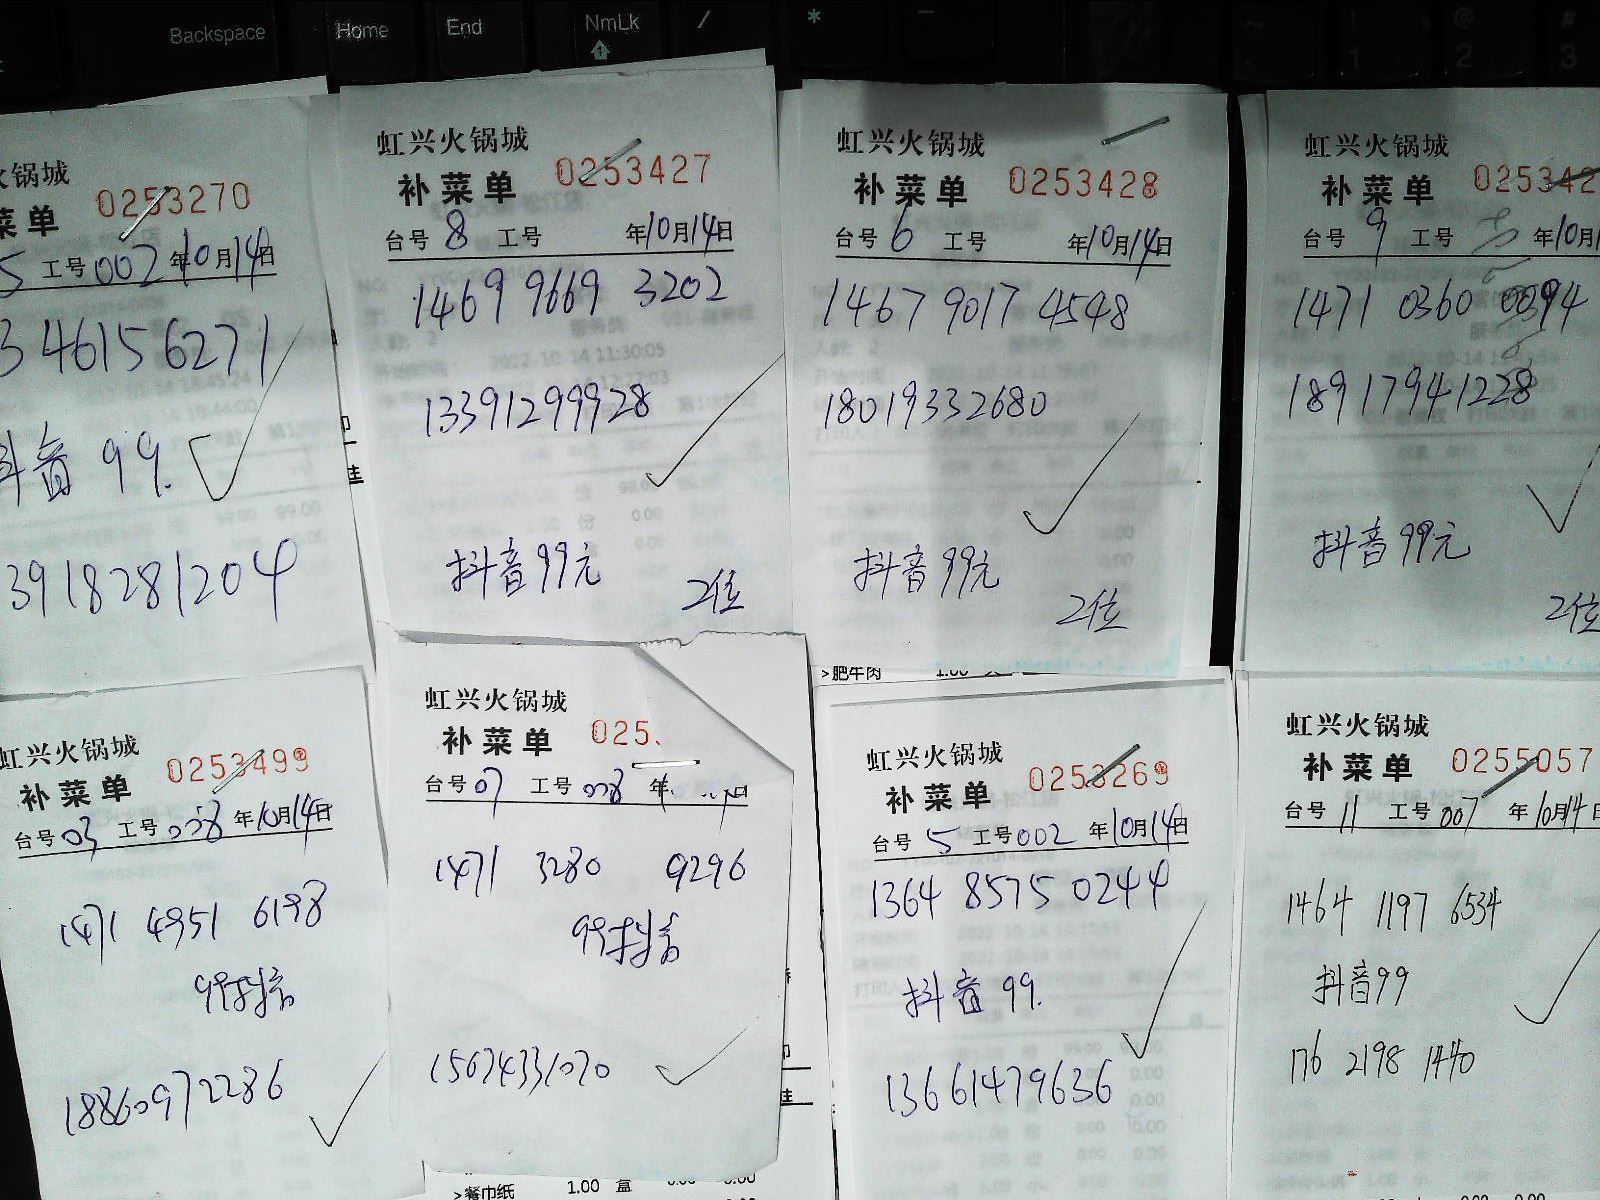 Backspace
Home
End
NmLk
/
*
火锅城
0253270
菜单
5 工号002 年10月14日
346156271
抖音 99.
3918281204
虹兴火锅城
0253427
补菜单
台号 8 工号 年10月14日
1469 9669 3202
13391299928
抖音99元
2位
虹兴火锅城
0253428
补菜单
台号 6 工号 年10月14日
1467 9017 4548
18019332680
抖音99元
2位
虹兴火锅城
025342
补菜单
台号 9 工号 年10月1
1471 0360 0394
18917941228
抖音99元
2位
虹兴火锅城
0253499
补菜单
台号03 工号008 年10月14日
1471 4951 6198
99抖音
18860972286
虹兴火锅城
025
补菜单
台号07 工号008 年
1471 3280 9296
99抖音
15674331070
>肥牛肉 1.00
虹兴火锅城
0253269
补菜单
台号 5 工号002 年10月14日
1364 8575 0244
抖音 99.
13661479636
虹兴火锅城
0255057
补菜单
台号 11 工号 007 年10月14日
1464 1197 6534
抖音99
176 2198 1440
>餐巾纸 1.00 盒 0.00 0.00